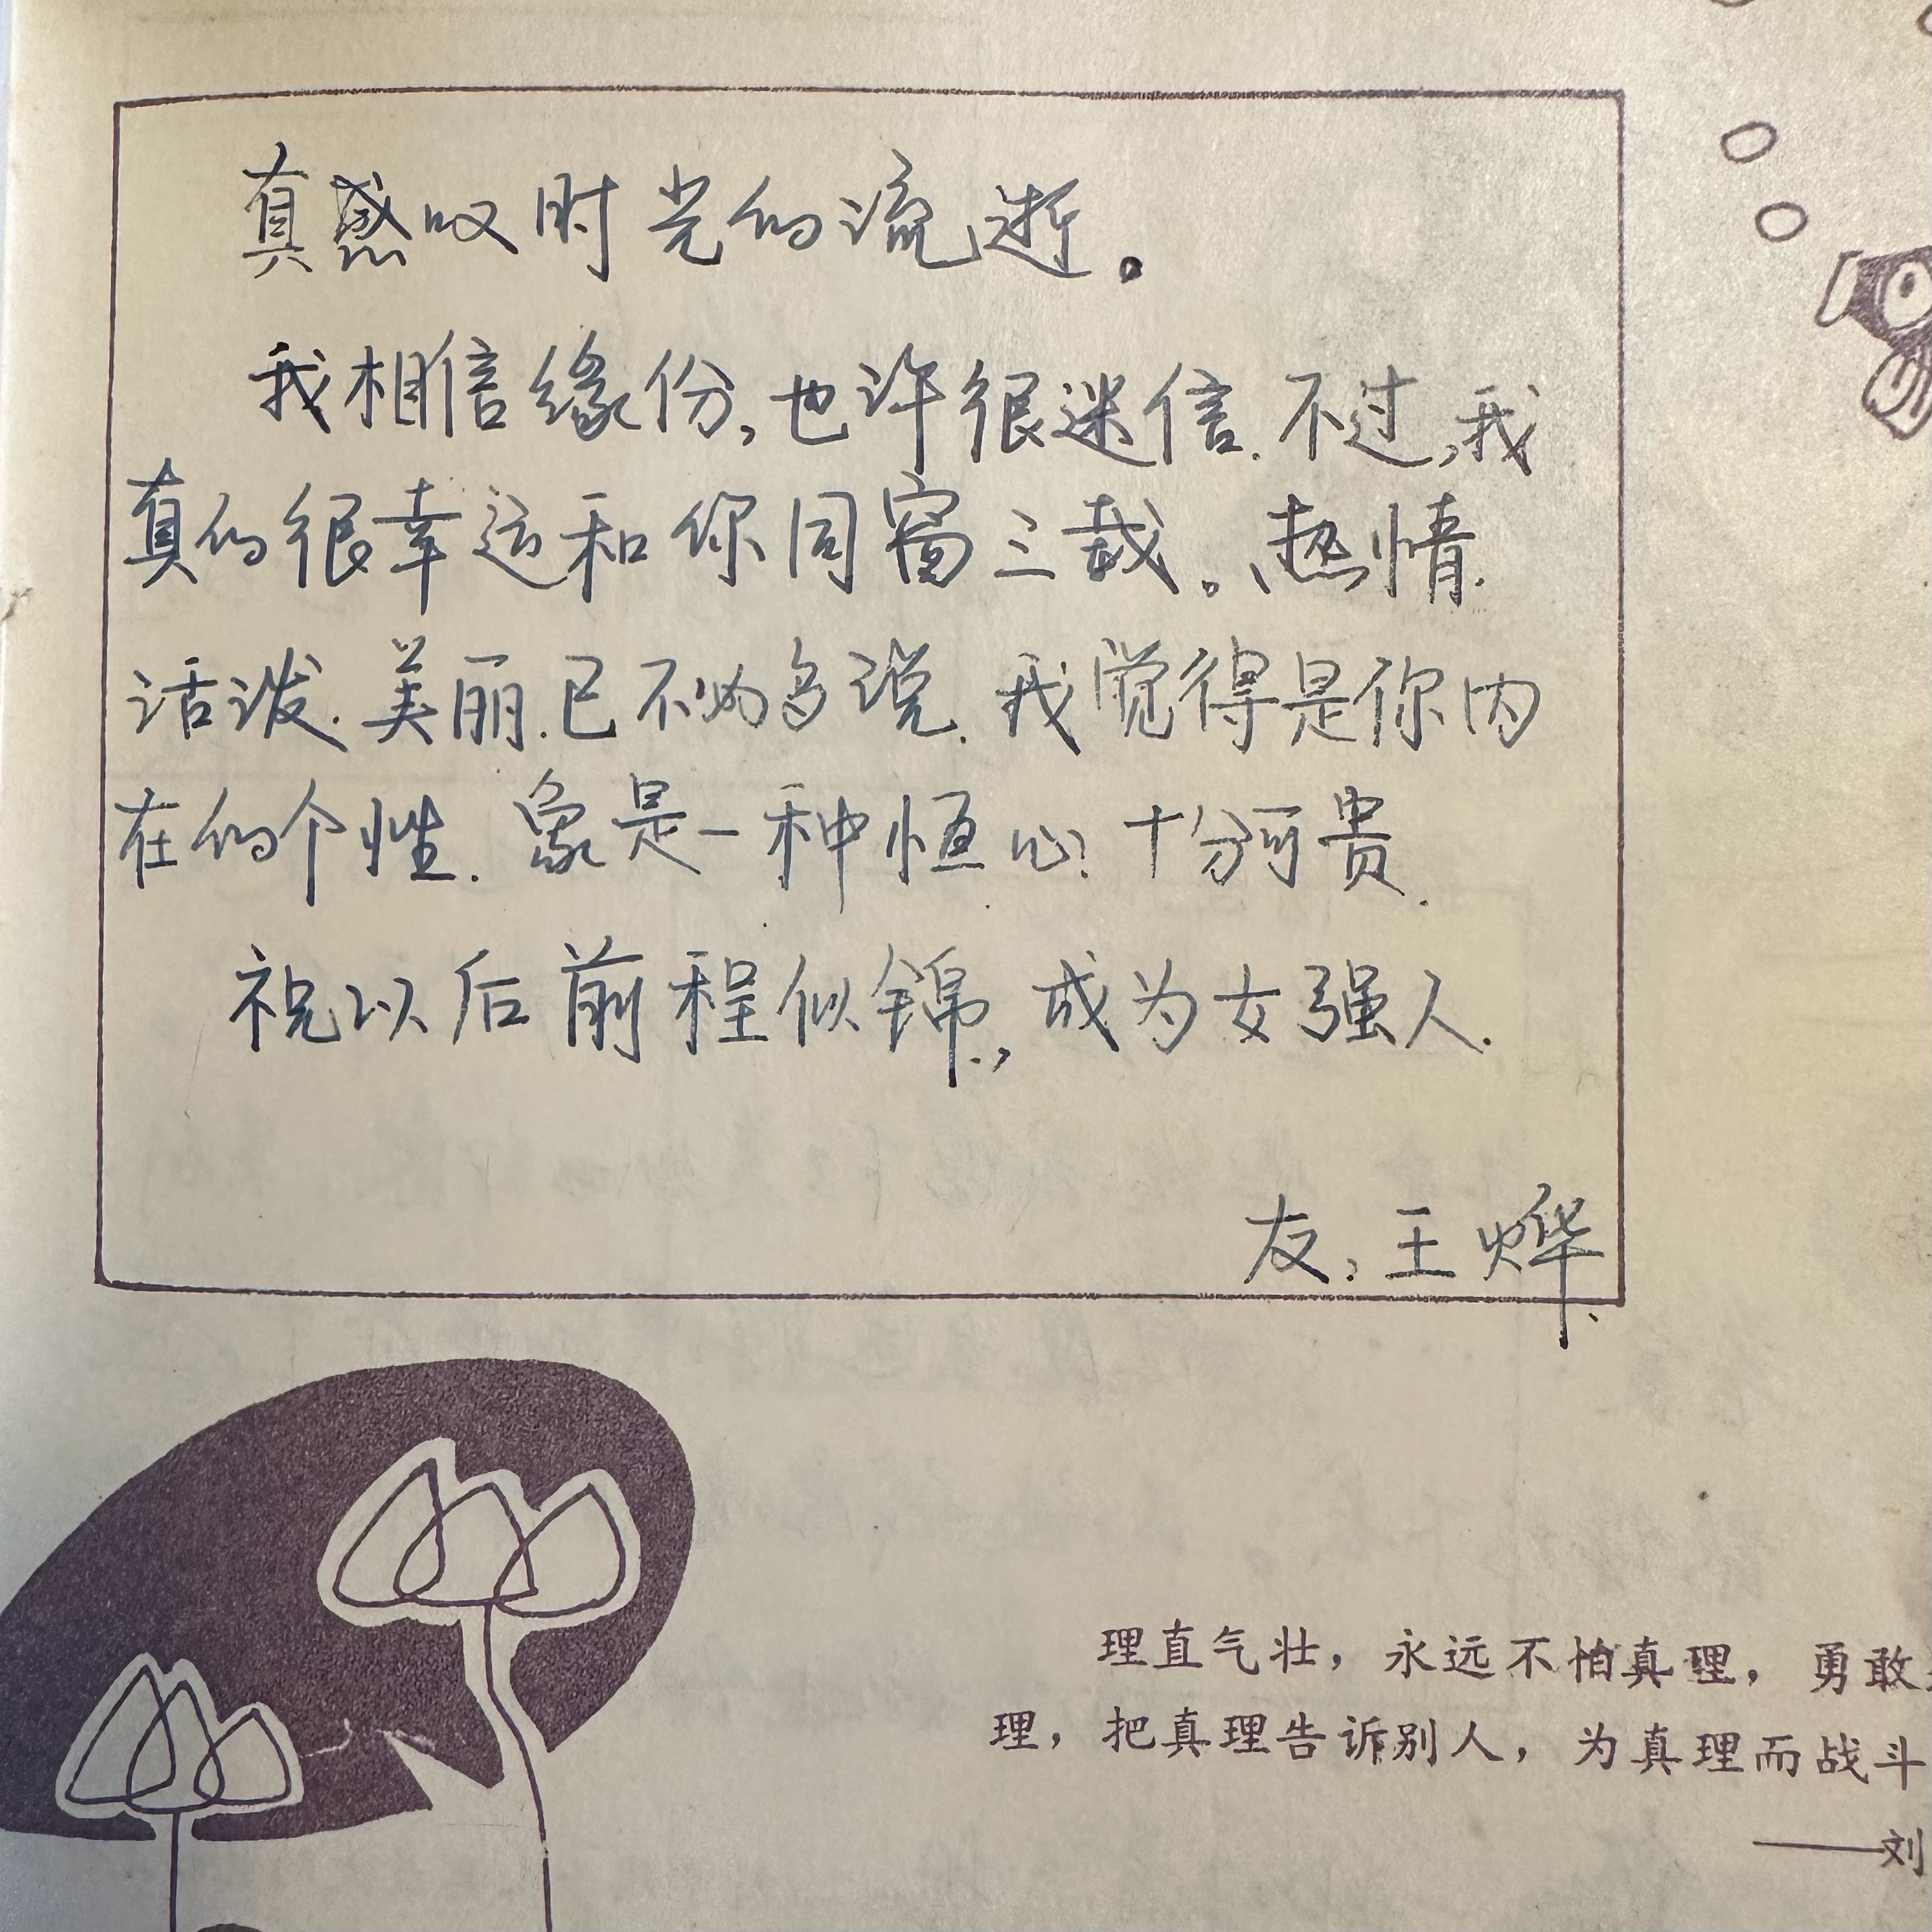 真感叹时光的流逝。
我相信缘份,也许很迷信.不过,我
真的很幸运和你同窗三载。、热情.
活泼.美丽.已不必多说.我觉得是你内
在的个性.象是一种恒心?十分可贵.
祝以后前程似锦.,成为女强人.
友:王烨
理直气壮，永远不怕真理，勇敢
理，把真理告诉别人，为真理而战斗
——刘